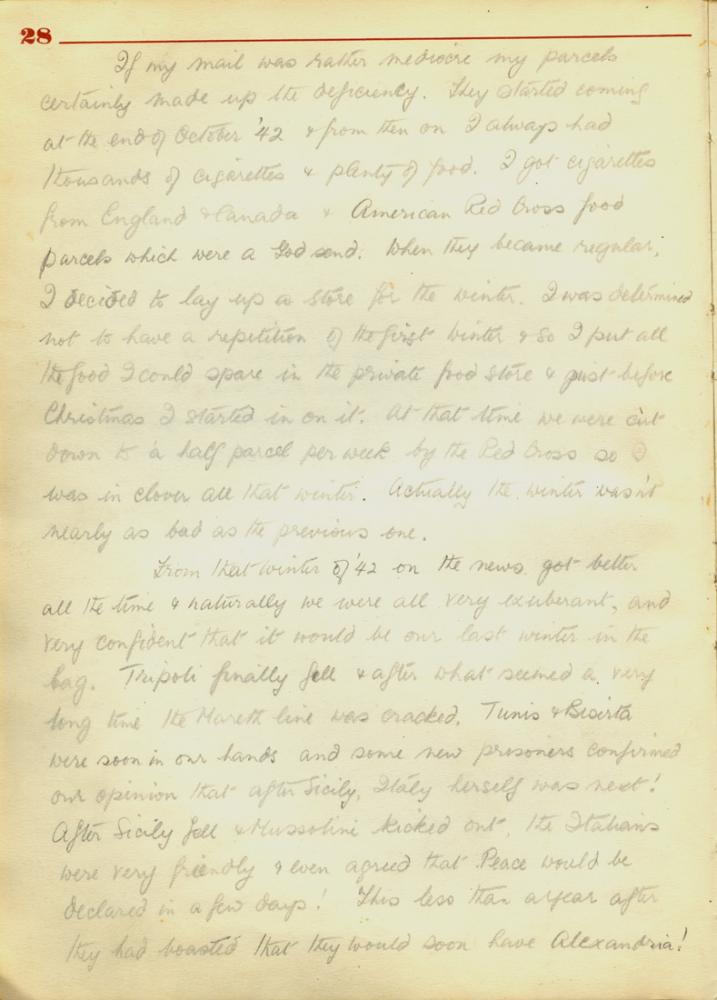 28
If my mail was rather mediocre my parcels
certainly made up the deficiency. They started coming
at the end of October '42 & from then on I always had
thousands of cigarettes & plenty of food. I got cigarettes
from England & Canada & American Red Cross food
parcels which were a God send. When they became regular,
I decided to lay up a store for the winter. I was determined
not to have a repetition of the first winter & so I put all
the food I could spare in the private food store & just before
Christmas I started in on it. At that time we were cut
down to a half parcel per week by the Red Cross so I
was in clover all that winter. Actually the winter wasn't
nearly as bad as the previous one.
From that winter of '42 on the news got better
all the time & naturally we were all very exuberant, and
very confident that it would be our last winter in the
bag. Tripoli finally fell & after what seemed a very
long time the Mareth line was cracked. Tunis & Bisirta
were soon in our hands and some new prisoners confirmed
our opinion that after Sicily, Italy herself was next!
After Sicily fell & Mussolini kicked out, the Italians
were very friendly & even agreed that Peace would be
declared in a few days! This less than a year after
they had boasted that they would soon have Alexandria!